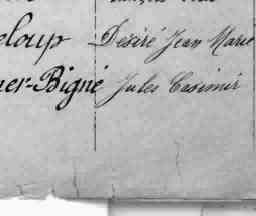 eloup Désiré Jean Marie
er-Bigné Jules Casimir